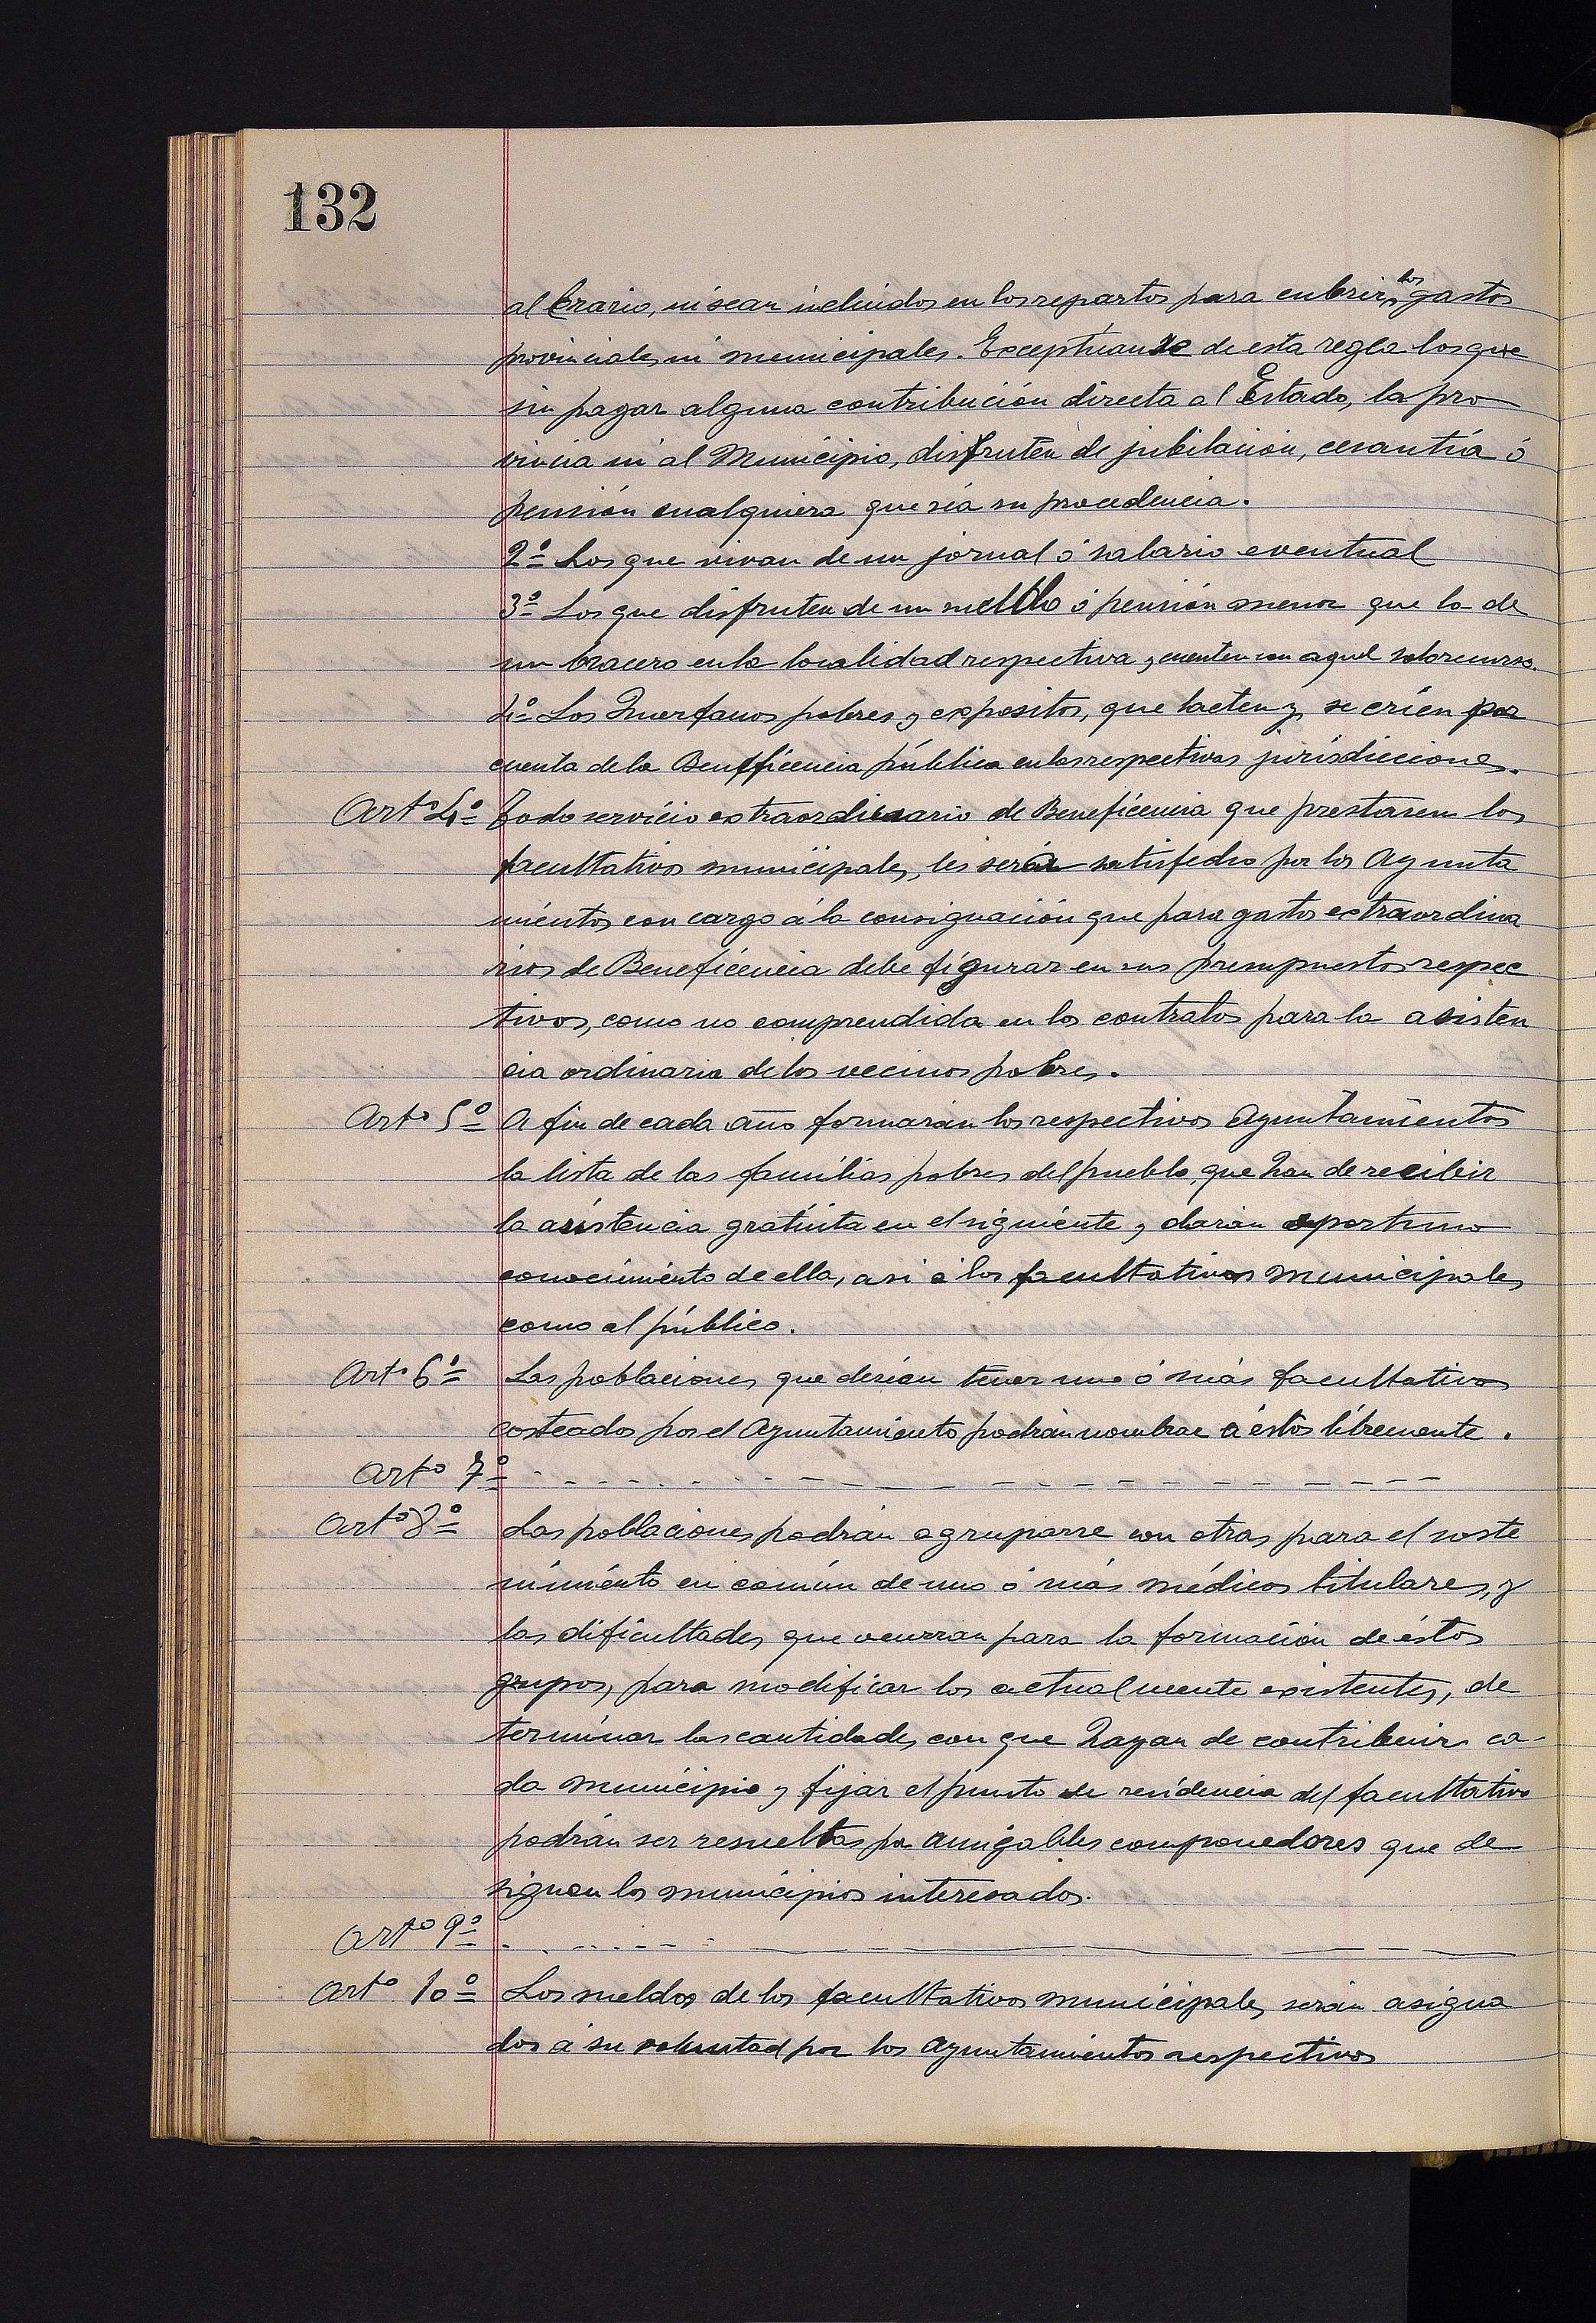 132
al Erario, ni sean incluidos en los repartos para cubrir los gastos
provinciales ni municipales. Exceptúanse de esta regla los que
sin pagar alguna contribución directa al Estado, la pro
vincia ni al Municipio, disfruten de jubilación, cesantía ó
pensión cualquiera que séa su procedencia.
2º Los que vivan de un jornal ó salario eventual
3º Los que disfruten de un sueldo ó pensión menor que la de
un bracero en la localidad respectiva, y cuenten con aquel solo recurso.
4º Los Huerfanos pobres y expositos, que lacten y se crien por
cuenta de la Beneficencia pública en las respectivas jurisdicciones.
Artº 4º Todo servicio extraordinario de Beneficencia que prestaren los
facultativos municipales, les será satisfecho por los Ayunta
mientos con cargo á la consignación que para gastos extraordina
rios de Beneficencia debe figurar en sus presupuestos respec
tivos, como no comprendida en los contratos para la asisten
cia ordinaria de los vecinos pobres.
Artº 5º A fin de cada año formarán los respectivos Ayuntamientos
la lista de las familias pobres del pueblo, que han de recibir
la asistencia gratuita en el siguiente y darán oportuno
conocimiento de ella, asi á los facultativos municipales
como al público.
Artº 6º Las poblaciones que deséen tener uno ó más facultativos
costeados por el Ayuntamiento podrán nombrar á éstos libremente.
Artº 7º
Artº 8º Las poblaciones podrán agruparse con otras para el soste
nimiento en común de uno ó más médicos titulares, y
las dificultades que ocurran para la formación de éstos
grupos, para modificar los actualmente existentes, de
terminar las cantidades con que hayan de contribuir ca-
da municipio y fijar el punto de residencia del facultativo
podrán ser resueltas por amigables componedores que de
signen los municipios interesados.
Artº 9º
Artº 10º Los sueldos de los facultativos municipales serán asigna
dos á su voluntad por los Ayuntamientos respectivos